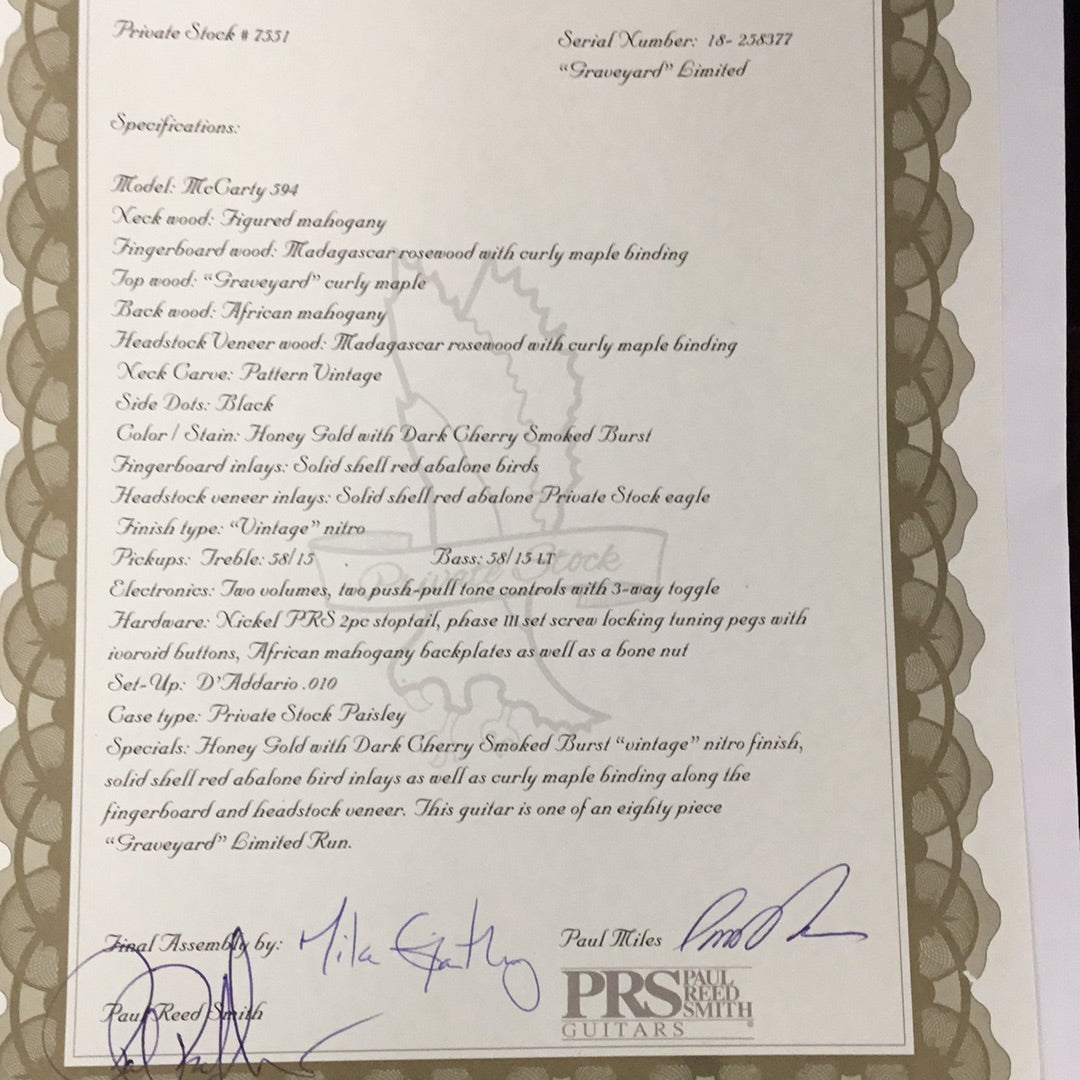 Private Stock # 7551
Serial Number: 18- 258377
"Graveyard" Limited
Specifications:
Model: McCarty 594
Neck wood: Figured mahogany
Fingerboard wood: Madagascar rosewood with curly maple binding
Top wood: "Graveyard" curly maple
Back wood: African mahogany
Headstock Veneer wood: Madagascar rosewood with curly maple binding
Neck Carve: Pattern Vintage
Side Dots: Black
Color / Stain: Honey Gold with Dark Cherry Smoked Burst
Fingerboard inlays: Solid shell red abalone birds
Headstock veneer inlays: Solid shell red abalone Private Stock eagle
Finish type: "Vintage" nitro
Pickups: Treble: 58/15 Bass: 58/15 LT
Private Stock
Electronics: Two volumes, two push-pull tone controls with 3-way toggle
Hardware: Nickel PRS 2pc stoptail, phase III set screw locking tuning pegs with
ivoroid buttons, African mahogany backplates as well as a bone nut
Set-Up: D'Addario .010
Case type: Private Stock Paisley
Specials: Honey Gold with Dark Cherry Smoked Burst "vintage" nitro finish,
solid shell red abalone bird inlays as well as curly maple binding along the
fingerboard and headstock veneer. This guitar is one of an eighty piece
"Graveyard" Limited Run.
Final Assembly by: Mika
Paul Miles
Paul Reed Smith
PRS PAUL REED SMITH
GUITARS